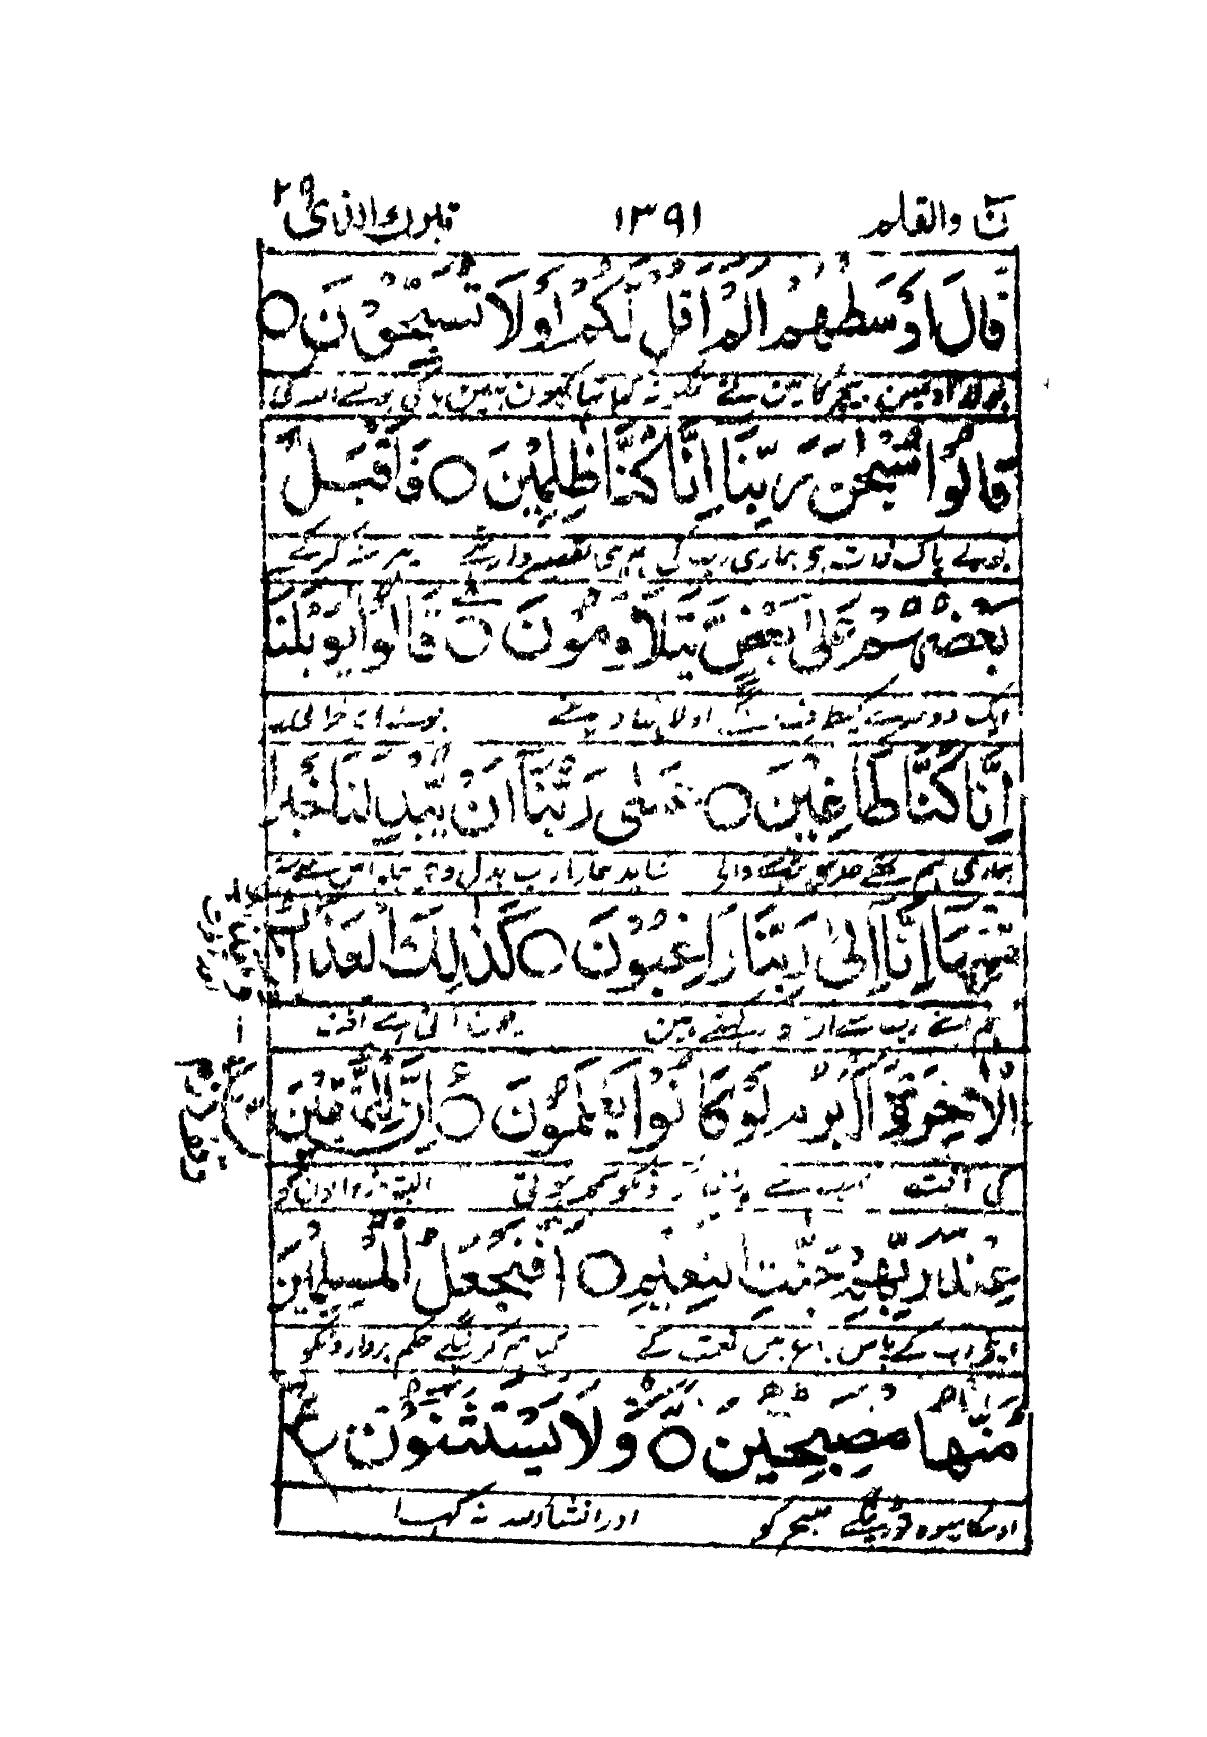 نٓ والقلم ۱۳۹۱ تبٰرك الذی ۲۹
قَالَ اَوْسَطُهُمْ اَلَمْ اَقُلْ لَّكُمْ لَوْلَا تُسَبِّحُوْنَ ○
بولا اونمین بیچ کا مین نے تمکو نہ کہا تہا کیون نہین پاکی بولتے اللہ کی
قَالُوْا سُبْحٰنَ رَبِّنَا اِنَّا كُنَّا ظٰلِمِيْنَ ○ فَاَقْبَلَ
بولے پاک ذات ہی ہماری رب کی ہم ہی تقصیر وار تھے پہر منہ کر کے
بَعْضُهُمْ عَلٰى بَعْضٍ يَّتَلَاوَمُوْنَ ○ قَالُوْا يٰوَيْلَنَا
ایک دوسرے کیطرف لگے اولاہنا دینے بولے ای خرابی
اِنَّا كُنَّا طَاغِيْنَ ○ عَسٰى رَبُّنَا اَنْ يُّبْدِلَنَا خَيْرًا
ہماری ہم تھے حد سے بڑھنے والی شاید ہمارا رب بدل دے ہمکو اس سے بہتر
مِّنْهَا اِنَّا اِلٰى رَبِّنَا رَاغِبُوْنَ ○ كَذٰلِكَ الْعَذَابُ
ہم اپنے رب سے آرزو رکھتے ہین یون آتی ہے آفت
الْاٰخِرَةِ اَكْبَرُ لَوْ كَانُوْا يَعْلَمُوْنَ ○ اِنَّ لِلْمُتَّقِيْنَ
کی آفت سب سے بڑی سمجھ ہوتی البتہ ڈر والون کو
عِنْدَ رَبِّهِمْ جَنّٰتِ النَّعِيْمِ ○ اَفَنَجْعَلُ الْمُسْلِمِيْنَ
اونکی رب کے پاس باغ ہین نعمت کے کیا ہم کرینگے حکم بردارونکو
مِنَّهَا مُصْبِحِيْنَ ○ وَلَا يَسْتَثْنُوْنَ
اوسکا میوہ توڑینگے صبح کو اور انشاءاللہ نہ کہا